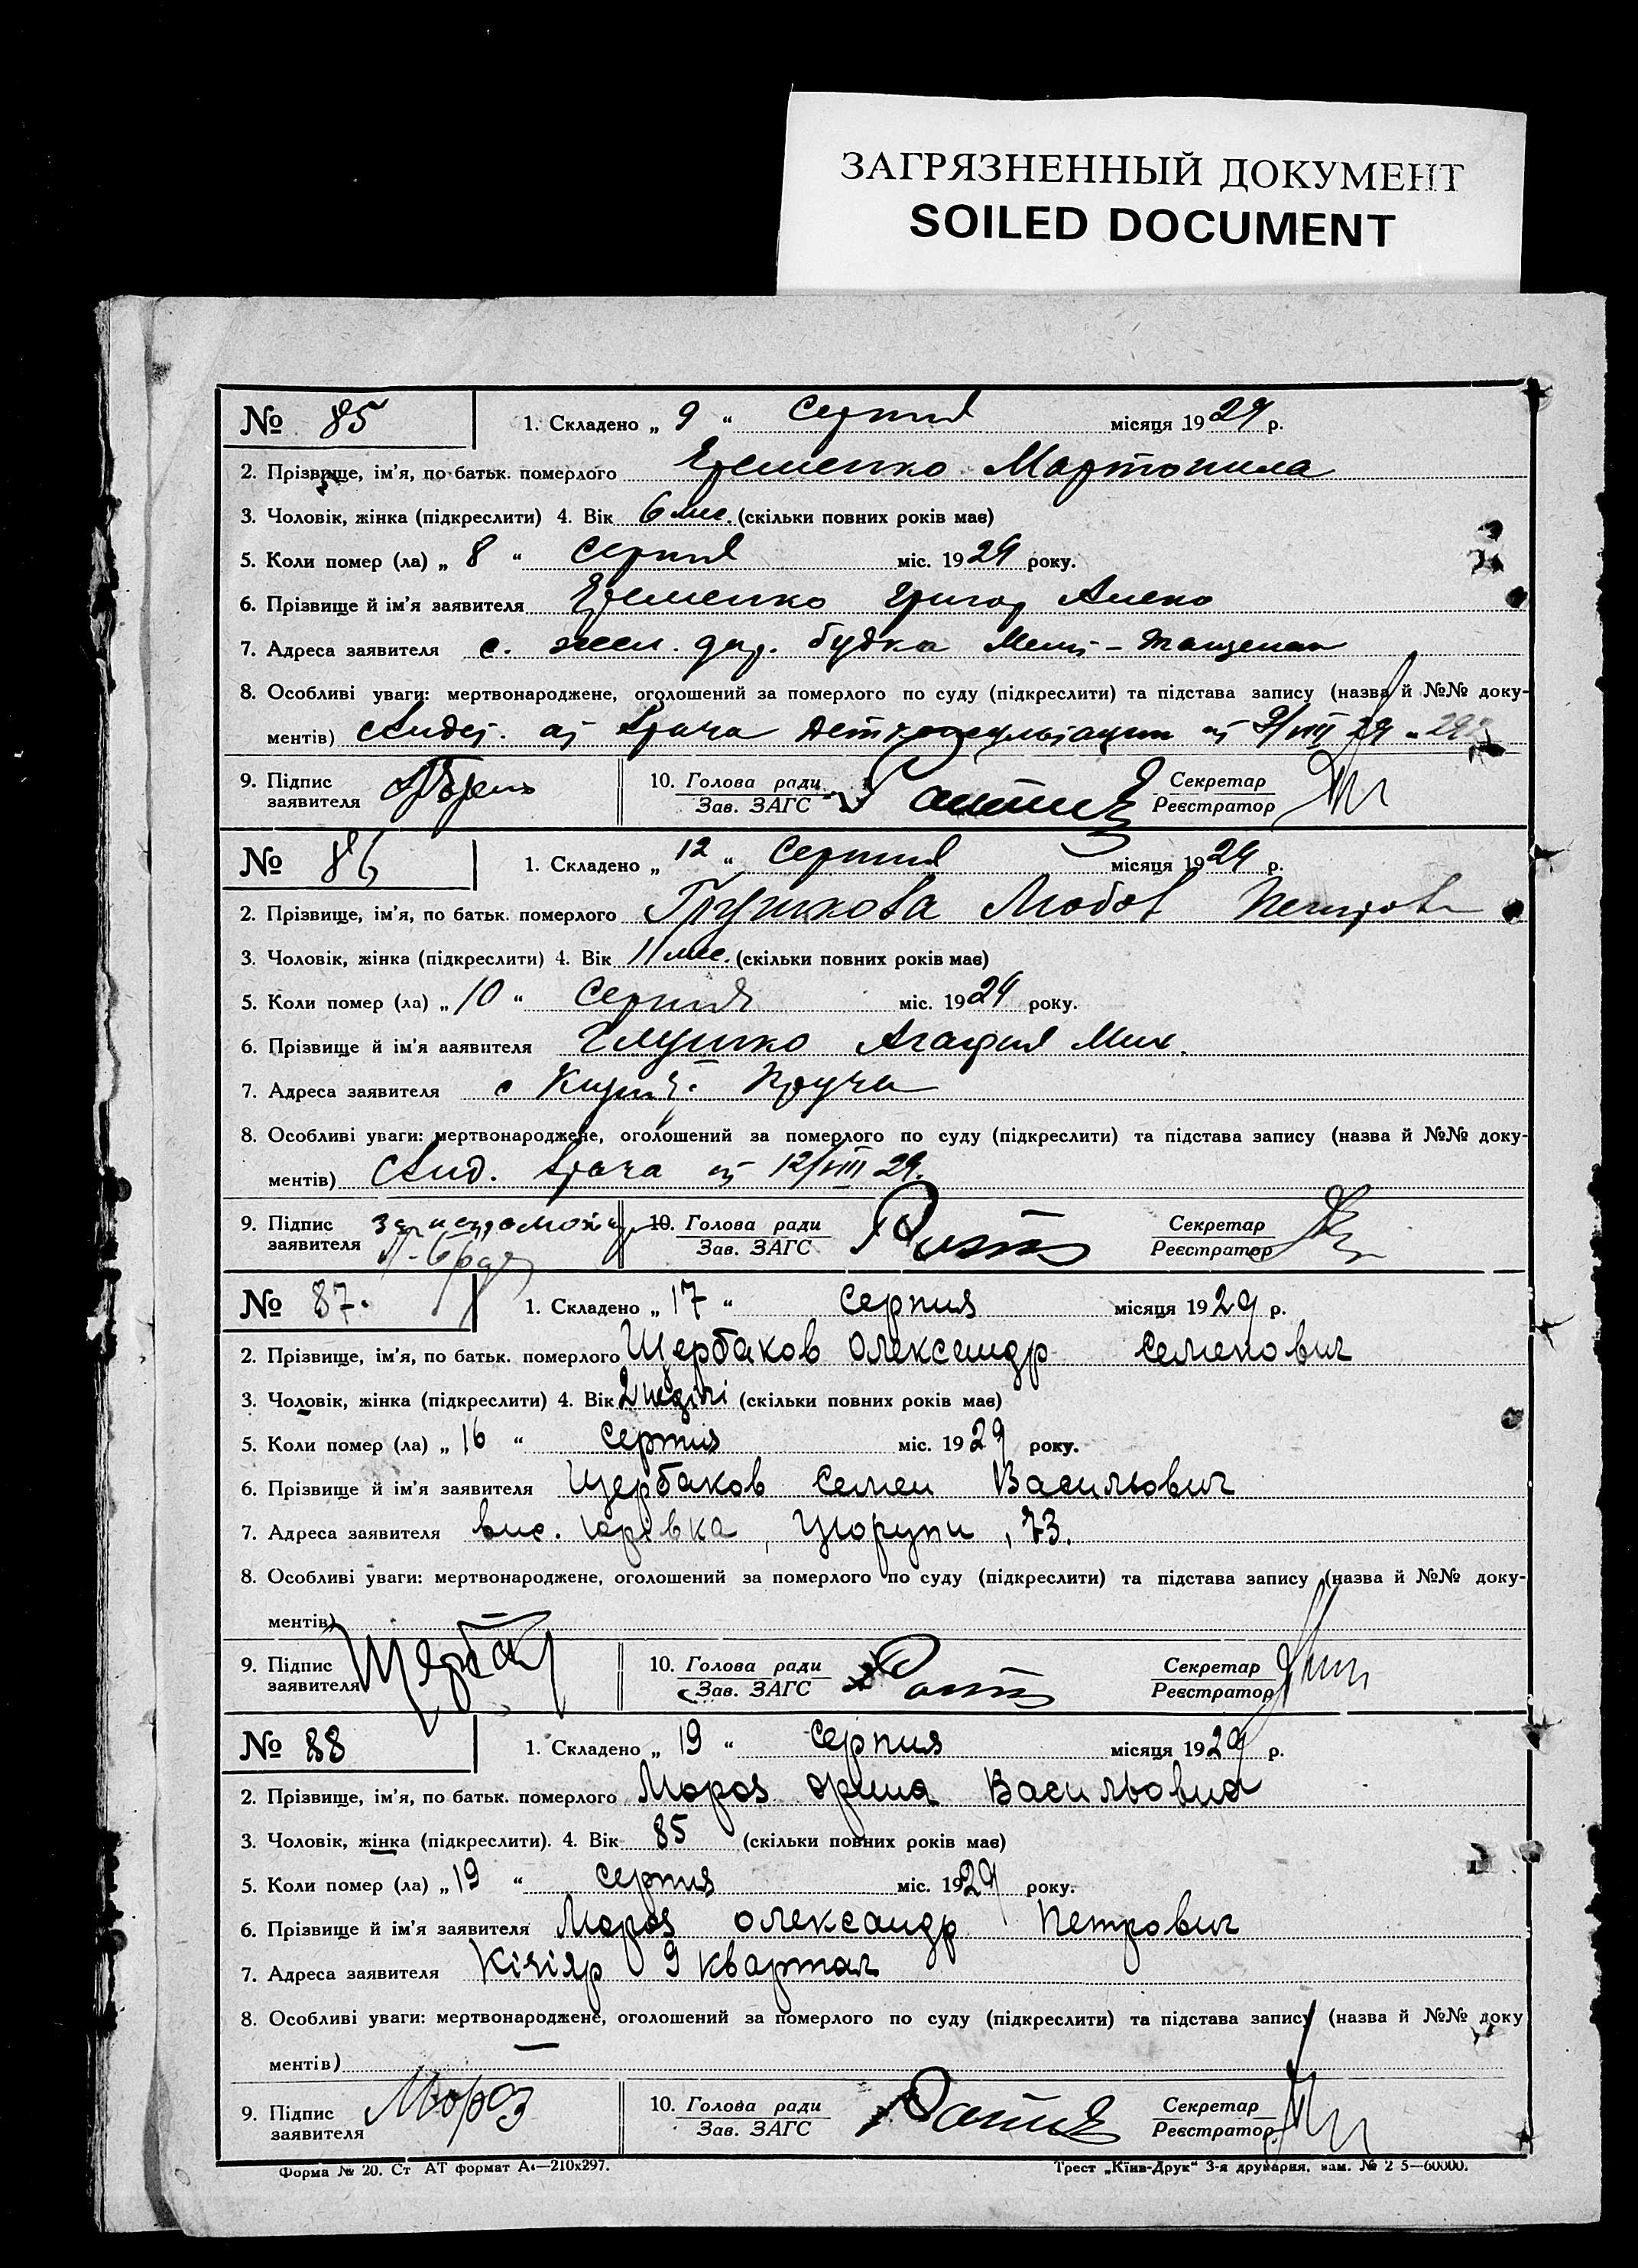 ЗАГРЯЗНЕННЫЙ ДОКУМЕНТ
SOILED DOCUMENT
№ 85 1. Складено „ 9 “ Серпня місяця 1929 р.
2. Прізвище, ім'я, по батьк. померлого Еременко
3. Чоловік, жінка (підкреслити) 4. Вік 6 мес. (скільки повних років має)
5. Коли помер (ла) „ 8 “ Серпня міс. 1929 року.
6. Прізвище й ім'я заявителя Еременко Григор
7. Адреса заявителя с. жел. дор. будка
8. Особливі уваги: мертвонароджене, оголошений за померлого по суду (підкреслити) та підстава запису (назва й №№ доку-
ментів) врача от 9/VIII 29
9. Підпис заявителя 10. Голова ради Зав. ЗАГС Секретар Реєстратор
№ 86 1. Складено „ 12 “ Серпня місяця 1929 р.
2. Прізвище, ім'я, по батьк. померлого Любов
3. Чоловік, жінка (підкреслити) 4. Вік 11 мес. (скільки повних років має)
5. Коли помер (ла) „ 10 “ Серпня міс. 1929 року.
6. Прізвище й ім'я ааявителя Агафия Мих.
7. Адреса заявителя с
8. Особливі уваги: мертвонароджене, оголошений за померлого по суду (підкреслити) та підстава запису (назва й №№ доку-
ментів) Свид. врача от 12/VIII 29.
9. Підпис заявителя 10. Голова ради Зав. ЗАГС Секретар Реєстратор
№ 87. 1. Складено „ 17 “ Серпня місяця 1929 р.
2. Прізвище, ім'я, по батьк. померлого Щербаков Олександр Семенович
3. Чоловік, жінка (підкреслити) 4. Вік 2 неділі (скільки повних років має)
5. Коли помер (ла) „ 16 “ Серпня міс. 1929 року.
6. Прізвище й ім'я заявителя Щербаков Семен Васильович
7. Адреса заявителя вис. Юрівка, Цюрупи, 73.
8. Особливі уваги: мертвонароджене, оголошений за померлого по суду (підкреслити) та підстава запису (назва й №№ доку-
ментів)
9. Підпис заявителя 10. Голова ради Зав. ЗАГС Секретар Реєстратор
№ 88 1. Складено „ 19 “ Серпня місяця 1929 р.
2. Прізвище, ім'я, по батьк. померлого Мороз Орина Васильовна
3. Чоловік, жінка (підкреслити). 4. Вік 85 (скільки повних років має)
5. Коли помер (ла) „ 19 “ Серпня міс. 1929 року.
6. Прізвище й ім'я заявителя Мороз Олександр Петрович
7. Адреса заявителя Кізіяр 9 квартал
8. Особливі уваги: мертвонароджене, оголошений за померлого по суду (підкреслити) та підстава запису (назва й №№ доку
ментів) —
9. Підпис заявителя Мороз 10. Голова ради Зав. ЗАГС Секретар Реєстратор
Форма № 20. Ст АТ формат А4—210х297. Трест „Київ-Друк“ 3-я друкарня, зам. № 2 5—60000.